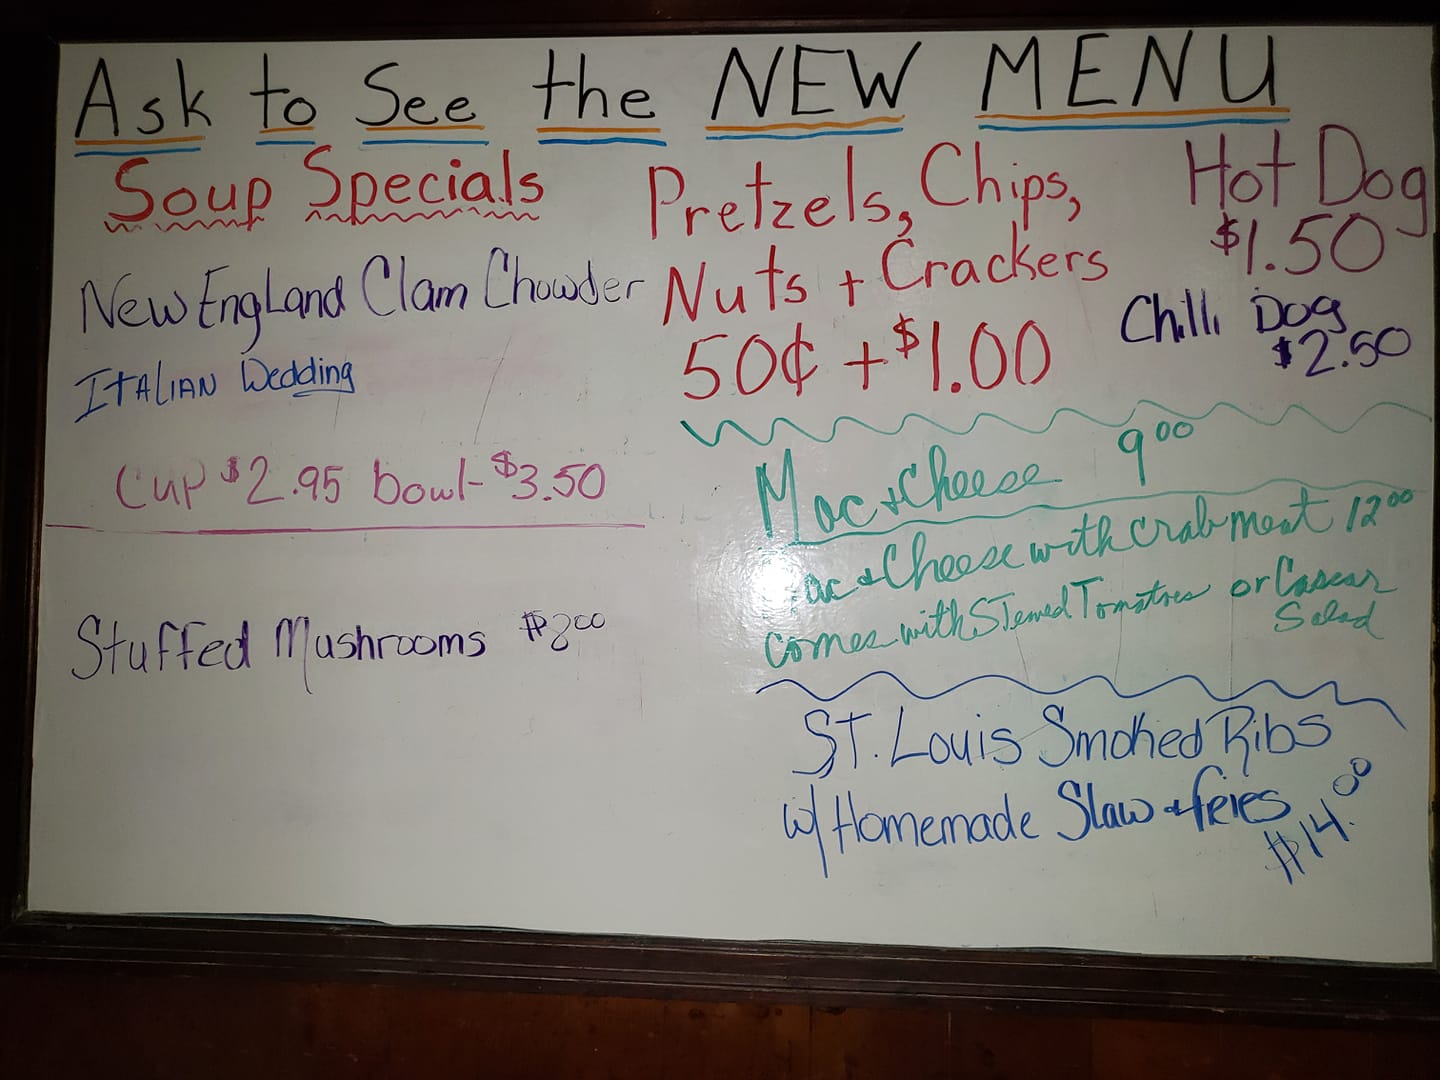 Ask to See the NEW MENU
Soup Specials
New England Clam Chowder
ITALIAN Wedding
Cup $2.95 bowl-$3.50
Stuffed Mushrooms $8.00
Pretzels, Chips,
Nuts + Crackers
50¢ + $1.00
Hot Dog
$1.50
Chilli Dog
$2.50
Mac + Cheese 9.00
Mac + Cheese with Crabmeat 12.00
comes with STewed Tomatoes or Caesar
Salad
ST. Louis Smoked Ribs
w/ Homemade Slaw + fries
$14.00